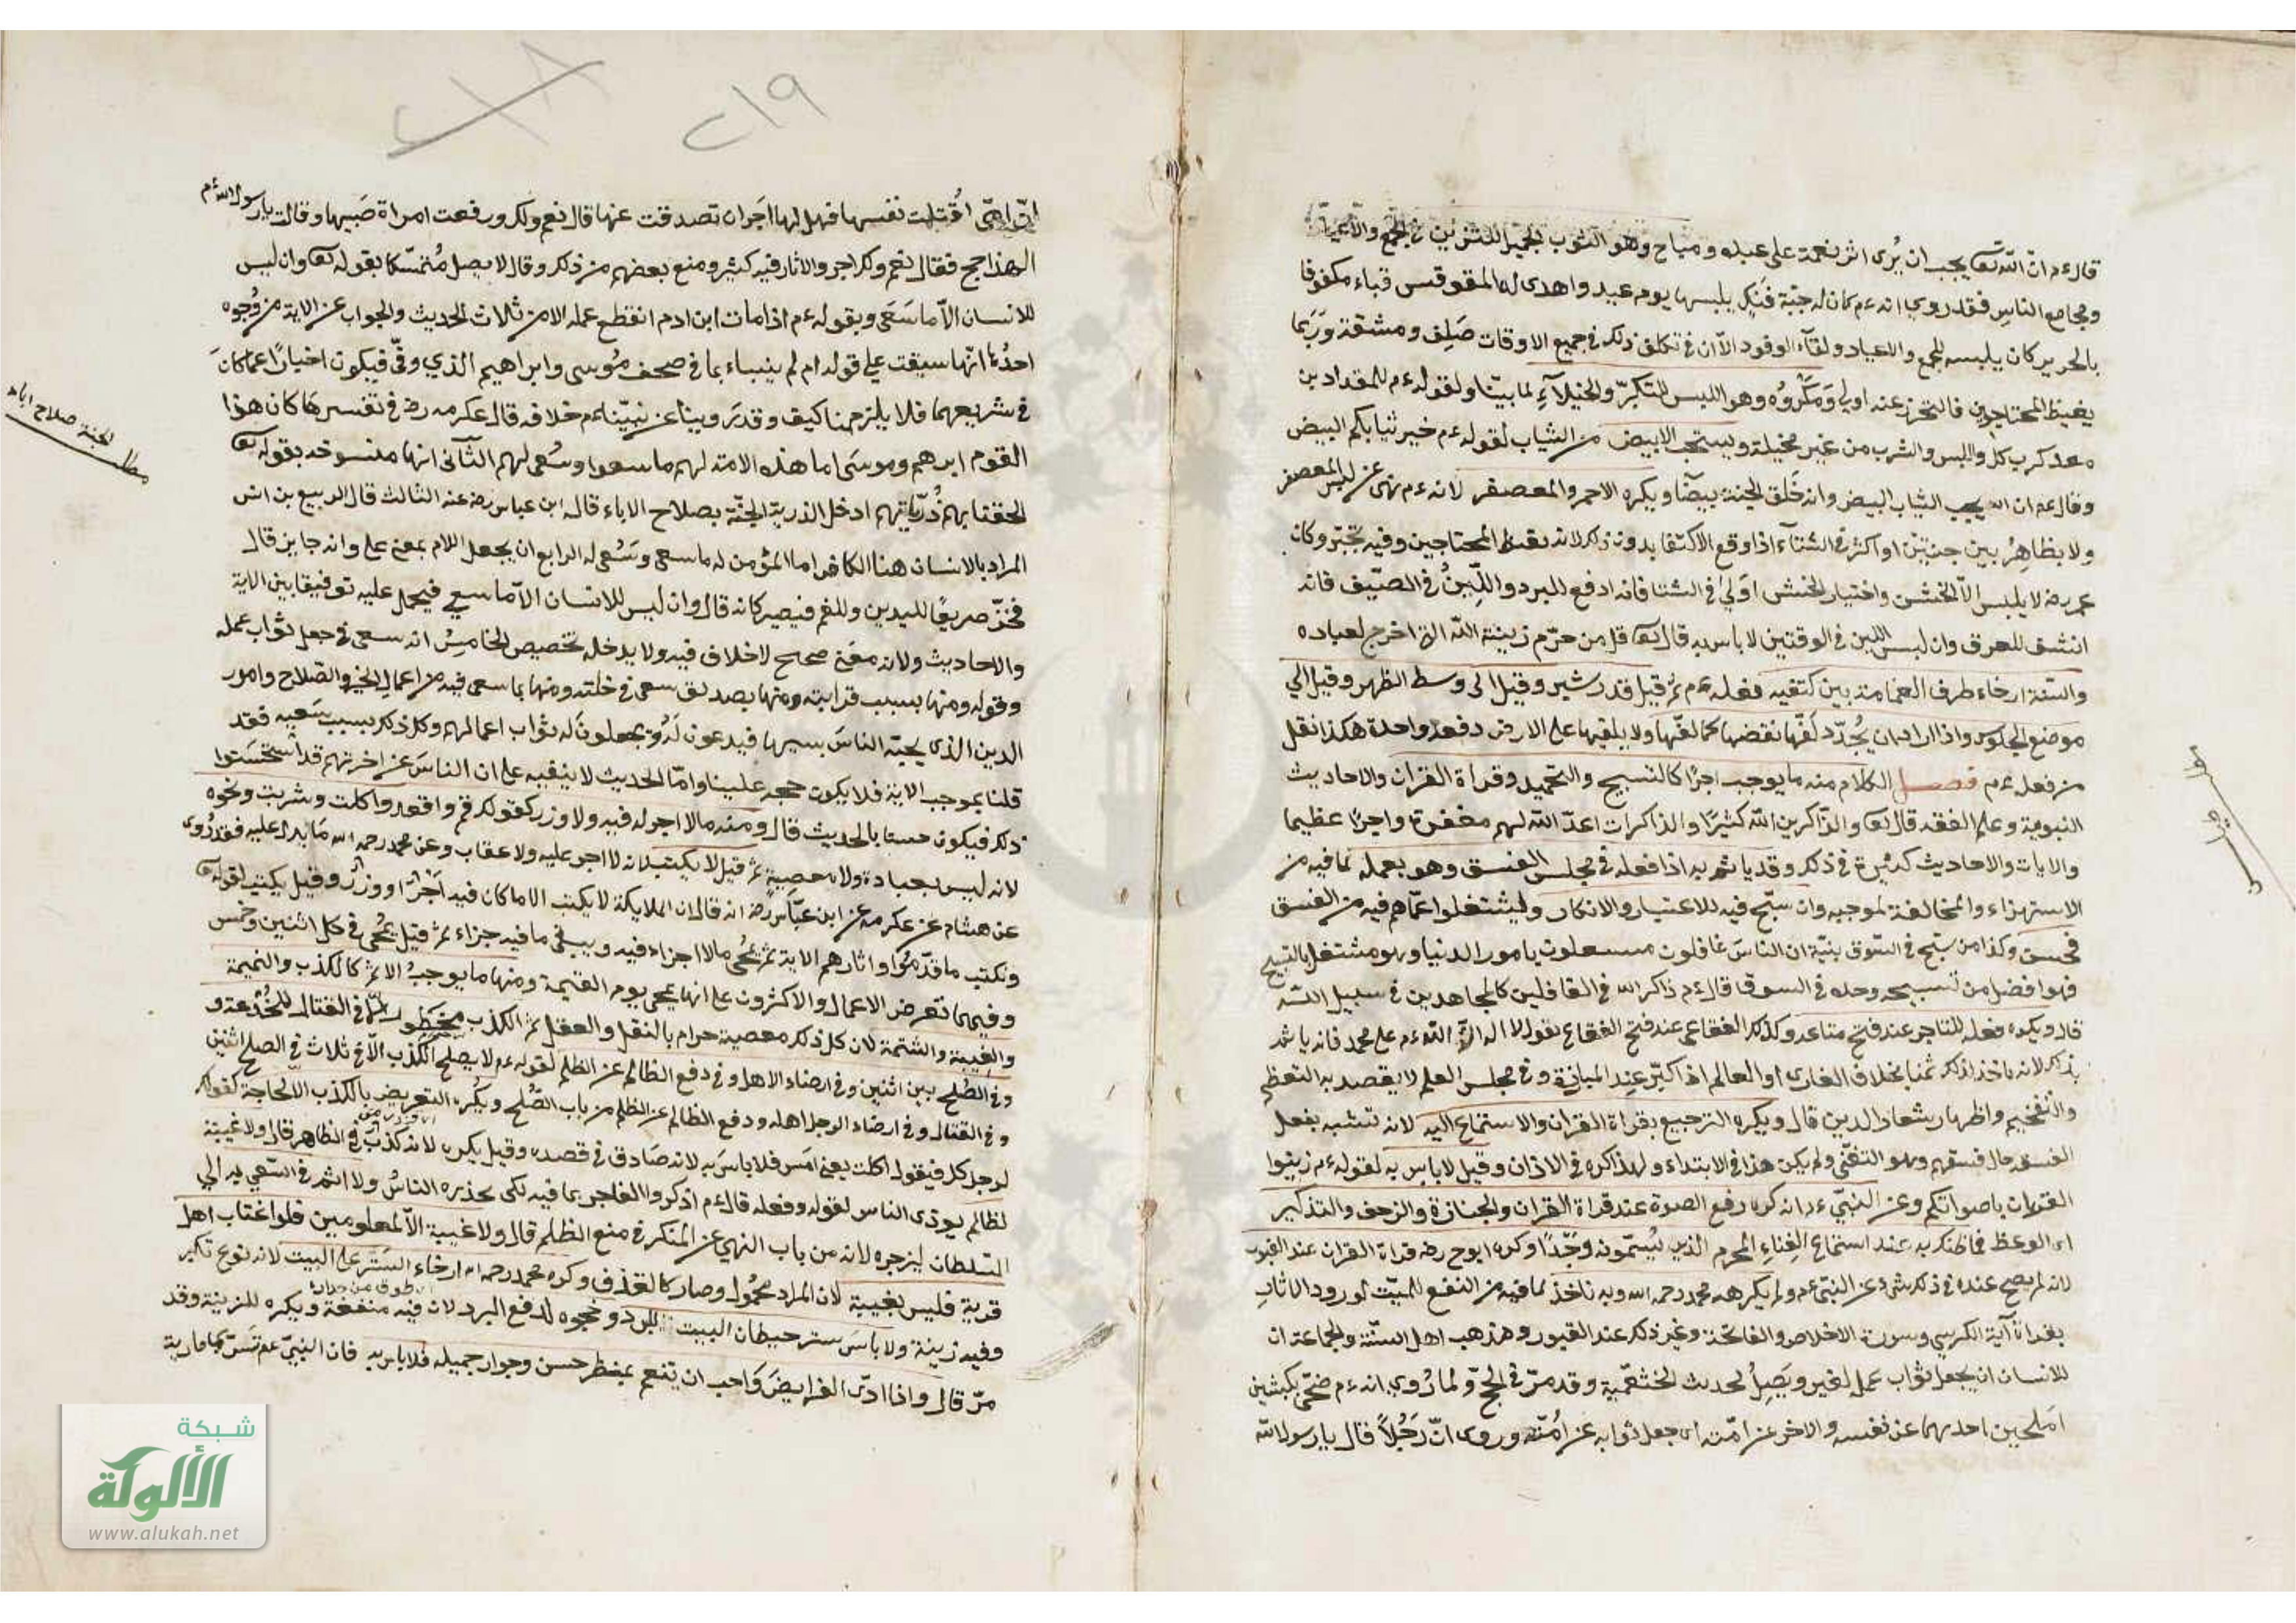 قال ءم انّ اللّه تعا يحب ان يُرى اثر نعمة على عبده ومباح وهو الثوب الجميل للتزيين في الجمع والاعياد
ومجامع الناس فقد روي انه ءم كان له جبّة فَنَكٍ يلبسها يوم عيد واهدى له المقوقس قباء مكفوفا
بالحرير كان يلبسه للجمع والاعياد ولقآء الوفود الاّ ان في تكلف ذلك في جميع الاوقات صَلِف ومشقة وَرَبما
يغيظ المحتاجين فالتحرز عنه اولى وَمَكْرُوُه وهو اللبس للتكبّر والخيلآءِ لما بيّنا ولقوله ءم للمقداد بن
معدكرب كل والبس والشرب من غير مخيلة ويستحب الابيض من الثياب لقوله ءم خير ثيابكم البيض
وقال عم ان الله يحب الثياب البيض وانه خَلَق الجنة بيضا ويكره الاحمر والمعصفر لانه ءم نهى عن لبس المعصفر
ولا يظاهِرُ بين جبتين او اكثر في الشتآء اذا وقع الاكتفا بدون ذلك لانه يغيظ المحتاجين وفيه تجبّر وكان
عمر رضه لا يلبس الاّ الخشن واختيار الخشن اولى في الشتا فانه ادفع للبرد واللِّينُ في الصيّف فانه
انشف للعرق وان لبس اللين في الوقتين لا باس به قال تعا قل من حرّم زينة اللّه التي اخرج لعباده
والسّنة ارخاء طرف العمامة بين كتفيه فعله ءم ثم قيل قدر شبر وقيل الى وسط الظهر وقيل الي
موضع الجلوس واذا اراد ان يُجدّد لَفّها نقضها كما لفّها ولا يلقيها على الارض دفعة واحدة هكذا نقل
من فعله ءم فصل الكلام منه ما يوجب اجرًا كالتسبيح والتحميد وقراة القران والاحاديث
النبوية وعلم الفقه قال تعا والذّاكرين اللّه كثيرًا والذاكرات اعدّ اللّه لهم مغفرة واجرًا عظيما
والايات والاحاديث كثيرة في ذلك وقد ياثم به اذا فعله في مجلس الفسق وهو يعمله لما فيه من
الاستهزاء والمخالفة لموجبه وان سبّح فيه للاعتبار والانكار وليشتغلوا عمّاهم فيه من الفسق
فحسن وكذا من سبّح في السّوق بنيّة ان الناسَ غافلون مشتغلون بامور الدنيا وهو مشتغل بالتسبيح
فهو افضل من تسبيحه وحده في السوق قال ءم ذاكر الله في الغافلين كالمجاهدين في سبيل اللّه
قال ويكره فعله للتاجر عند فتح متاعه وكذلك الفقاعي عند فتح الفقاع يقول لا اله الاّ اللّه ءم على محمد فانه ياثم
بذلك لانه ياخذ لذلك ثمنا بخلاف الغازى او العالم اذا كبّر عند المبارزة وفي مجلس العلم لا يقصد به التعظم
والتفخيم واظهار شعار الدين قال ويكره الترجيع بقراة القران والاستماع اليه لانه تشبه بفعل
الفسقة حال فسقهم وهو التغنّى ولم يكن هذا في الابتداء ولهذا كره في الاذان وقيل لا باس به لقوله ءم زينوا
القران باصواتكم وعن النبيّ ءم انه كره رفع الصوة عند قراة القران والجنازة والزحف والتذكير
اى الوعظ فما ظنك به عند استماع الغناءِ المحرم الذين يُسمّونه وَجْدًا وكره ابو ح رضه قراة القران عند القبور
لانه لم يصح عنده في ذلك شئ عن النبيّ عم ولم يكرهه محمد رحمه الله وبه ناخذ لما فيه من النفع للميّت لورود الاثار
بقراة آية الكرسي وسورة الاخلاص والفاتحة وغير ذلك عند القبور ومذهب اهل السنّة والجماعة ان
للانسان ان يجعل ثواب عمله لغيره ويَصِلُ لحديث الخثعميّة وقد مرّ في الحجّ ولما رُوي انه ءم ضحّى بكبشين
املحين احدهما عن نفسه والاخر عن امّته اى جعل ثوابه عن اُمّته وروى انّ رَجُلاً قال يا رسول اللّه
٢١٩
انّ امّى اُفْتلِتت نفسها فهل لها اجَر ان تصدقت عنها قال نعم ولك ورفعت امراة صَبيها وقالت يا رسول الله ءم
الهذا حج فقال نعم ولك اجر والاثار فيه كثير ومنع بعضهم من ذلك وقال لا يصل مُتمسّكا بقوله تعا وان ليس
للانسان الاّ ما سَعَى وبقوله ءم اذا مات ابن ادم انقطع عمله الا من ثلاث الحديث والجواب عن الاية من وُجوه
احدُها انّها سيقت على قوله ام لم ينباء بما في صحف مُوسى وابراهيم الذي وفّى فيكون اخبارًا عما كانَ
في شريعهما فلا يلزمنا كيف وقد رَوينا عن نبيّنا ءم خلافه قال عكرمه رضه في تفسيرهَا كان هذا
القوم ابرهم وموسَى اما هذه الامة لهم ما سعوا وسُعى لهم الثآنى انها منسوخه بقوله تعا
الحقنا بهم ذُرّيّاتهم ادخل الذرية الجنّة بصلاح الاباء قاله ابن عباس رضه عنه الثالث قال الربيع بن انس
المراد بالانسان هنا الكافر اما المؤمن له ما سعى وسُعى له الرابع ان يجعل اللام بمعنى على وانه جايز قال
فخرّ صريعًا لليدين وللفم فنصير كانه قال وان ليس للانسان الاّ ما سعى فيحمل عليه توفيقا بين الاية
والاحاديث ولانه معنى صحيح لا خلاف فيه ولا يدخله تخصيص الخامِسُ انه سعى في جعل ثواب عمله
الدين الذى يحبّه الناسَ بسببها فيدعون لَهُ ويجعلونَ له ثواب اعمالهم وكل ذلك بسبب سَعيه فقد
قلنا بموجب الاية فلا يكون حجة علينا وامّا الحديث لا ينفيه على ان الناسَ عن اخرتهم قد استحسَنوا
ذلك فيكون حسنا بالحديث قال ومنه ما لا اجر له فيه ولا وزر كقولك قم واقعد واكلت وشربت ونحوه
لانه ليس بعبادة ولا معصيةٍ ثم قيل لا يكتب لانه لا اجر عليه ولا عقاب وعن محمد رحمه الله مَا يدل عليه فقد رُوى
عن هشام عن عكرمه عن ابن عبّاس رضه انه قال ان الملايكة لا يكتب الا ما كان فيه اَجْرًا او وزرٌ وقيل يكتب لقوله تعا
ونكتب ما قدّمُوا واثارهم الاية ثم يُمْحُى ما لا اجزاء فيه ويبقى ما فيه جزاء ثم قيل يُمْحى في كل اثنين وخميس
وفيهما تعرض الاعمال والاكثرون على انها يمحى يوم القيمة ومنها ما يوجبُ الاثم كالكذب والنميمة
والغيبة والشتمة لان كل ذلك معصية حرام بالنقل والعقل ثم الكذب مَحظوُر الاّ في القتال للخُدْعة و
وفي الصُلح بين اثنين وفي ارضاء الاهل وفي دفع الظالم عن الظلم لقوله ءم لا يصلح الكذب الاّ في ثلاث في الصلح اثنين
وفي القتال وفي ارضاء الرجل اهله ودفع الظالم عن الظلم من باب الصُلح ويكُره التعريض بالكذب الا لحاجة كقولك
لرجل كل فيقول اكلت يعنى امَس فلا باسَ به لانه صَادق في قصده وقيل يكره لانه كذبٌ في الظاهر قال ولا غيبة
لظالم يوذى الناس لقوله وفعله قال ءم اذكروا الفاجر بما فيه لكى يحذره الناسُ ولا اثم في السّعي به الي
السّلطان ليزجره لانه من باب النهي عن المنكر في منع الظلم قال ولا غيبة الاّ لمعلومين فلو اغتاب اهل
قرية فليس بغيبة لانّ المراد مجهُول وصار كالقذف وكره محمد رحمه الله ارخاء السّتر على البيت لانه نوع تكبر
وفيه زينة ولا باسَ ستر حيطان البيت للبرد ونحوه لدفع البرد لان فيه منفعة ويكره للزينة وقد
مرّ قال واذا ادّى الفرايضَ وَاحب ان يتنعم بمنظر حسن وجوار جميله فلا باس به فان النبيّ عم تَسَرّى بمارية
شبكة
الألوكة
www.alukah.net